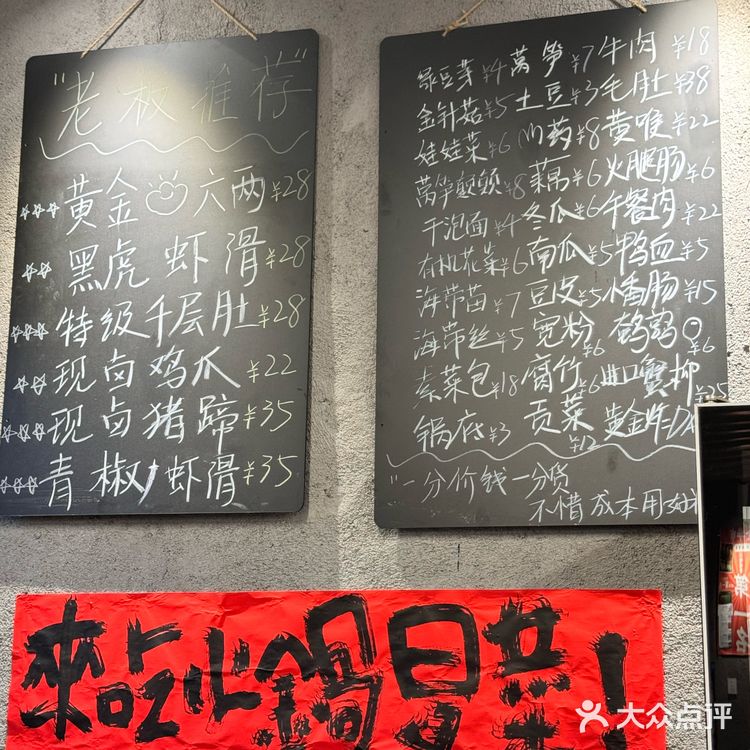 "老板推荐"
黄金 六两 ¥28
黑虎虾滑 ¥28
特级千层肚 ¥28
现卤鸡爪 ¥22
现卤猪蹄 ¥35
青椒虾滑 ¥35
绿豆芽 ¥4 莴笋 ¥7 牛肉 ¥18
金针菇 ¥5 土豆 ¥3 毛肚 ¥38
娃娃菜 ¥6 山药 ¥8 黄喉 ¥22
莴笋 ¥8 藕 ¥6 火腿肠 ¥6
干泡面 ¥4 冬瓜 ¥6 午餐肉 ¥22
有机花菜 ¥6 南瓜 ¥5 鸭血 ¥5
海带苗 ¥7 豆皮 ¥5 肠 ¥15
海带丝 ¥5 宽粉 ¥6 鹌鹑 ¥6
素菜包 ¥18 腐竹 ¥6 进口蟹柳 ¥25
锅底 ¥3 贡菜 ¥12 黄金炸
"一分价钱一分货
不惜成本用
來吃火鍋
大众点评